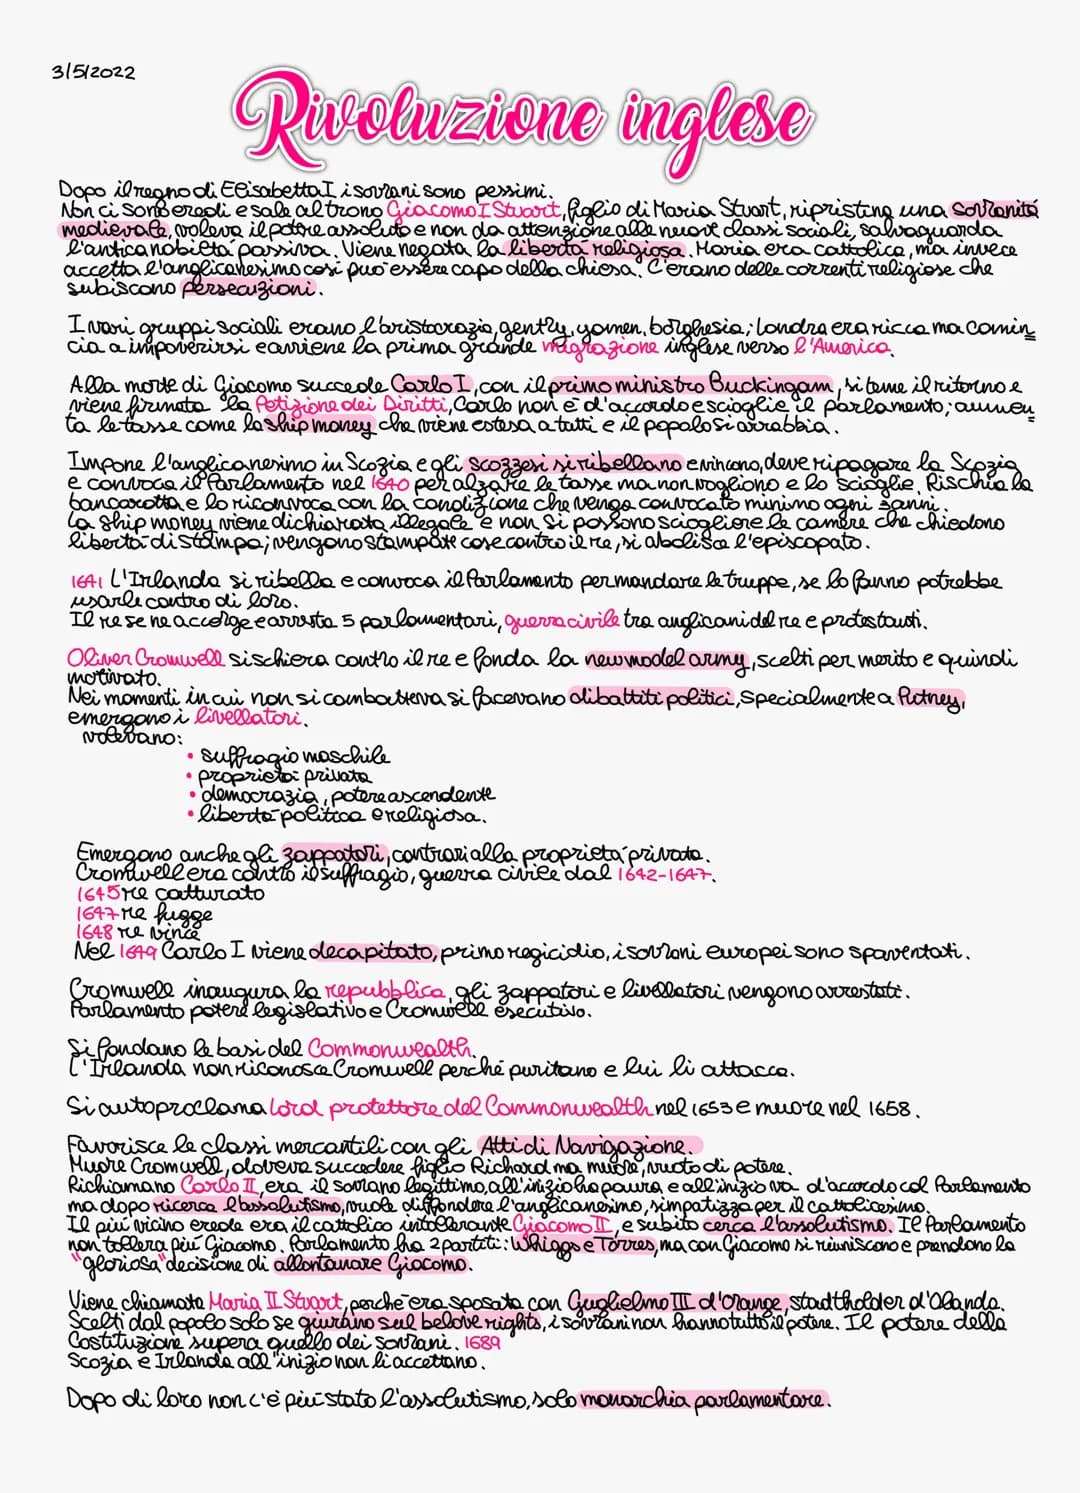 3/5/2022
Rivoluzione inglese
Dopo il regno di Elisabetta I i sovrani sono pessimi.
Non ci sono eredi e sale al trono Giacomo I Stuart, figlio di Maria Stuart, ripristina una sovranità
medievale, voleva il potere assoluto e non da attenzione alle nuove classi sociali, salvaguarda
l'antica nobiltà passiva. Viene negata la libertà religiosa. Maria era cattolica, ma invece
accetta l'anglicanesimo così può essere capo della chiesa. C'erano delle correnti religiose che
subiscono persecuzioni.
I vari gruppi sociali erano l'aristocrazia, gentry, yomen, borghesia; Londra era ricca ma comin
cia a impoverirsi e avviene la prima grande migrazione inglese verso l'America.
Alla morte di Giacomo succede Carlo I, con il primo ministro Buckingam, si teme il ritorno e
viene firmata la Petizione dei Diritti, Carlo non è d'accordo e scioglie il parlamento; aumen
ta le tasse come la ship money che viene estesa a tutti e il popolo si arrabbia.
Impone l'anglicanesimo in Scozia e gli scozzesi si ribellano e vincono, deve ripagare la Scozia
e convoca il Parlamento nel 1640 per alzare le tasse ma non vogliono e lo scioglie. Rischia la
bancarotta e lo riconvoca con la condizione che venga convocato minimo ogni 3 anni.
La ship money viene dichiarata illegale e non si possono sciogliere le camere che chiedono
libertà di stampa; vengono stampate cose contro il re, si abolisce l'episcopato.
1641 L'Irlanda si ribella e convoca il Parlamento per mandare le truppe, se lo fanno potrebbe
usarle contro di loro.
Il re se ne accorge e arresta 5 parlamentari, guerra civile tra anglicani del re e protestanti.
Oliver Cromwell si schiera contro il re e fonda la new model army, scelti per merito e quindi
motivato.
Nei momenti in cui non si combatteva si facevano dibattiti politici, specialmente a Putney,
emergono i livellatori.
volevano:
• suffragio maschile
• proprietà privata
• democrazia, potere ascendente
• libertà politica e religiosa.
Emergono anche gli zappatori, contrari alla proprietà privata.
Cromwell era contro il suffragio, guerra civile dal 1642-1647.
1645 re catturato
1647 re fugge
1648 re vince
Nel 1649 Carlo I viene decapitato, primo regicidio, i sovrani europei sono spaventati.
Cromwell inaugura la repubblica, gli zappatori e livellatori vengono arrestati.
Parlamento potere legislativo e Cromwell esecutivo.
Si fondano le basi del Commonwealth.
L'Irlanda non riconosce Cromwell perché puritano e lui li attacca.
Si autoproclama Lord protettore del Commonwealth nel 1653 e muore nel 1658.
Favorisce le classi mercantili con gli Atti di Navigazione.
Muore Cromwell, doveva succedere figlio Richard ma muore, vuoto di potere.
Richiamano Carlo II, era il sovrano legittimo, all'inizio ha paura e all'inizio va d'accordo col Parlamento
ma dopo ricerca l'assolutismo, vuole diffondere l'anglicanesimo, simpatizza per il cattolicesimo.
Il più vicino erede era il cattolico intollerante Giacomo II, e subito cerca l'assolutismo. Il Parlamento
non tollera più Giacomo. Parlamento ha 2 partiti: Whiggs e Torres, ma con Giacomo si riuniscono e prendono la
"gloriosa" decisione di allontanare Giacomo.
Viene chiamata Maria II Stuart, perché era sposata con Guglielmo III d'Orange, stadtholder d'Olanda.
Scelti dal popolo solo se giurano sul belove rights, i sovrani non hanno tutto il potere. Il potere della
Costituzione supera quello dei sovrani. 1689
Scozia e Irlanda all'inizio non li accettano.
Dopo di loro non c'è più stato l'assolutismo, solo monarchia parlamentare.